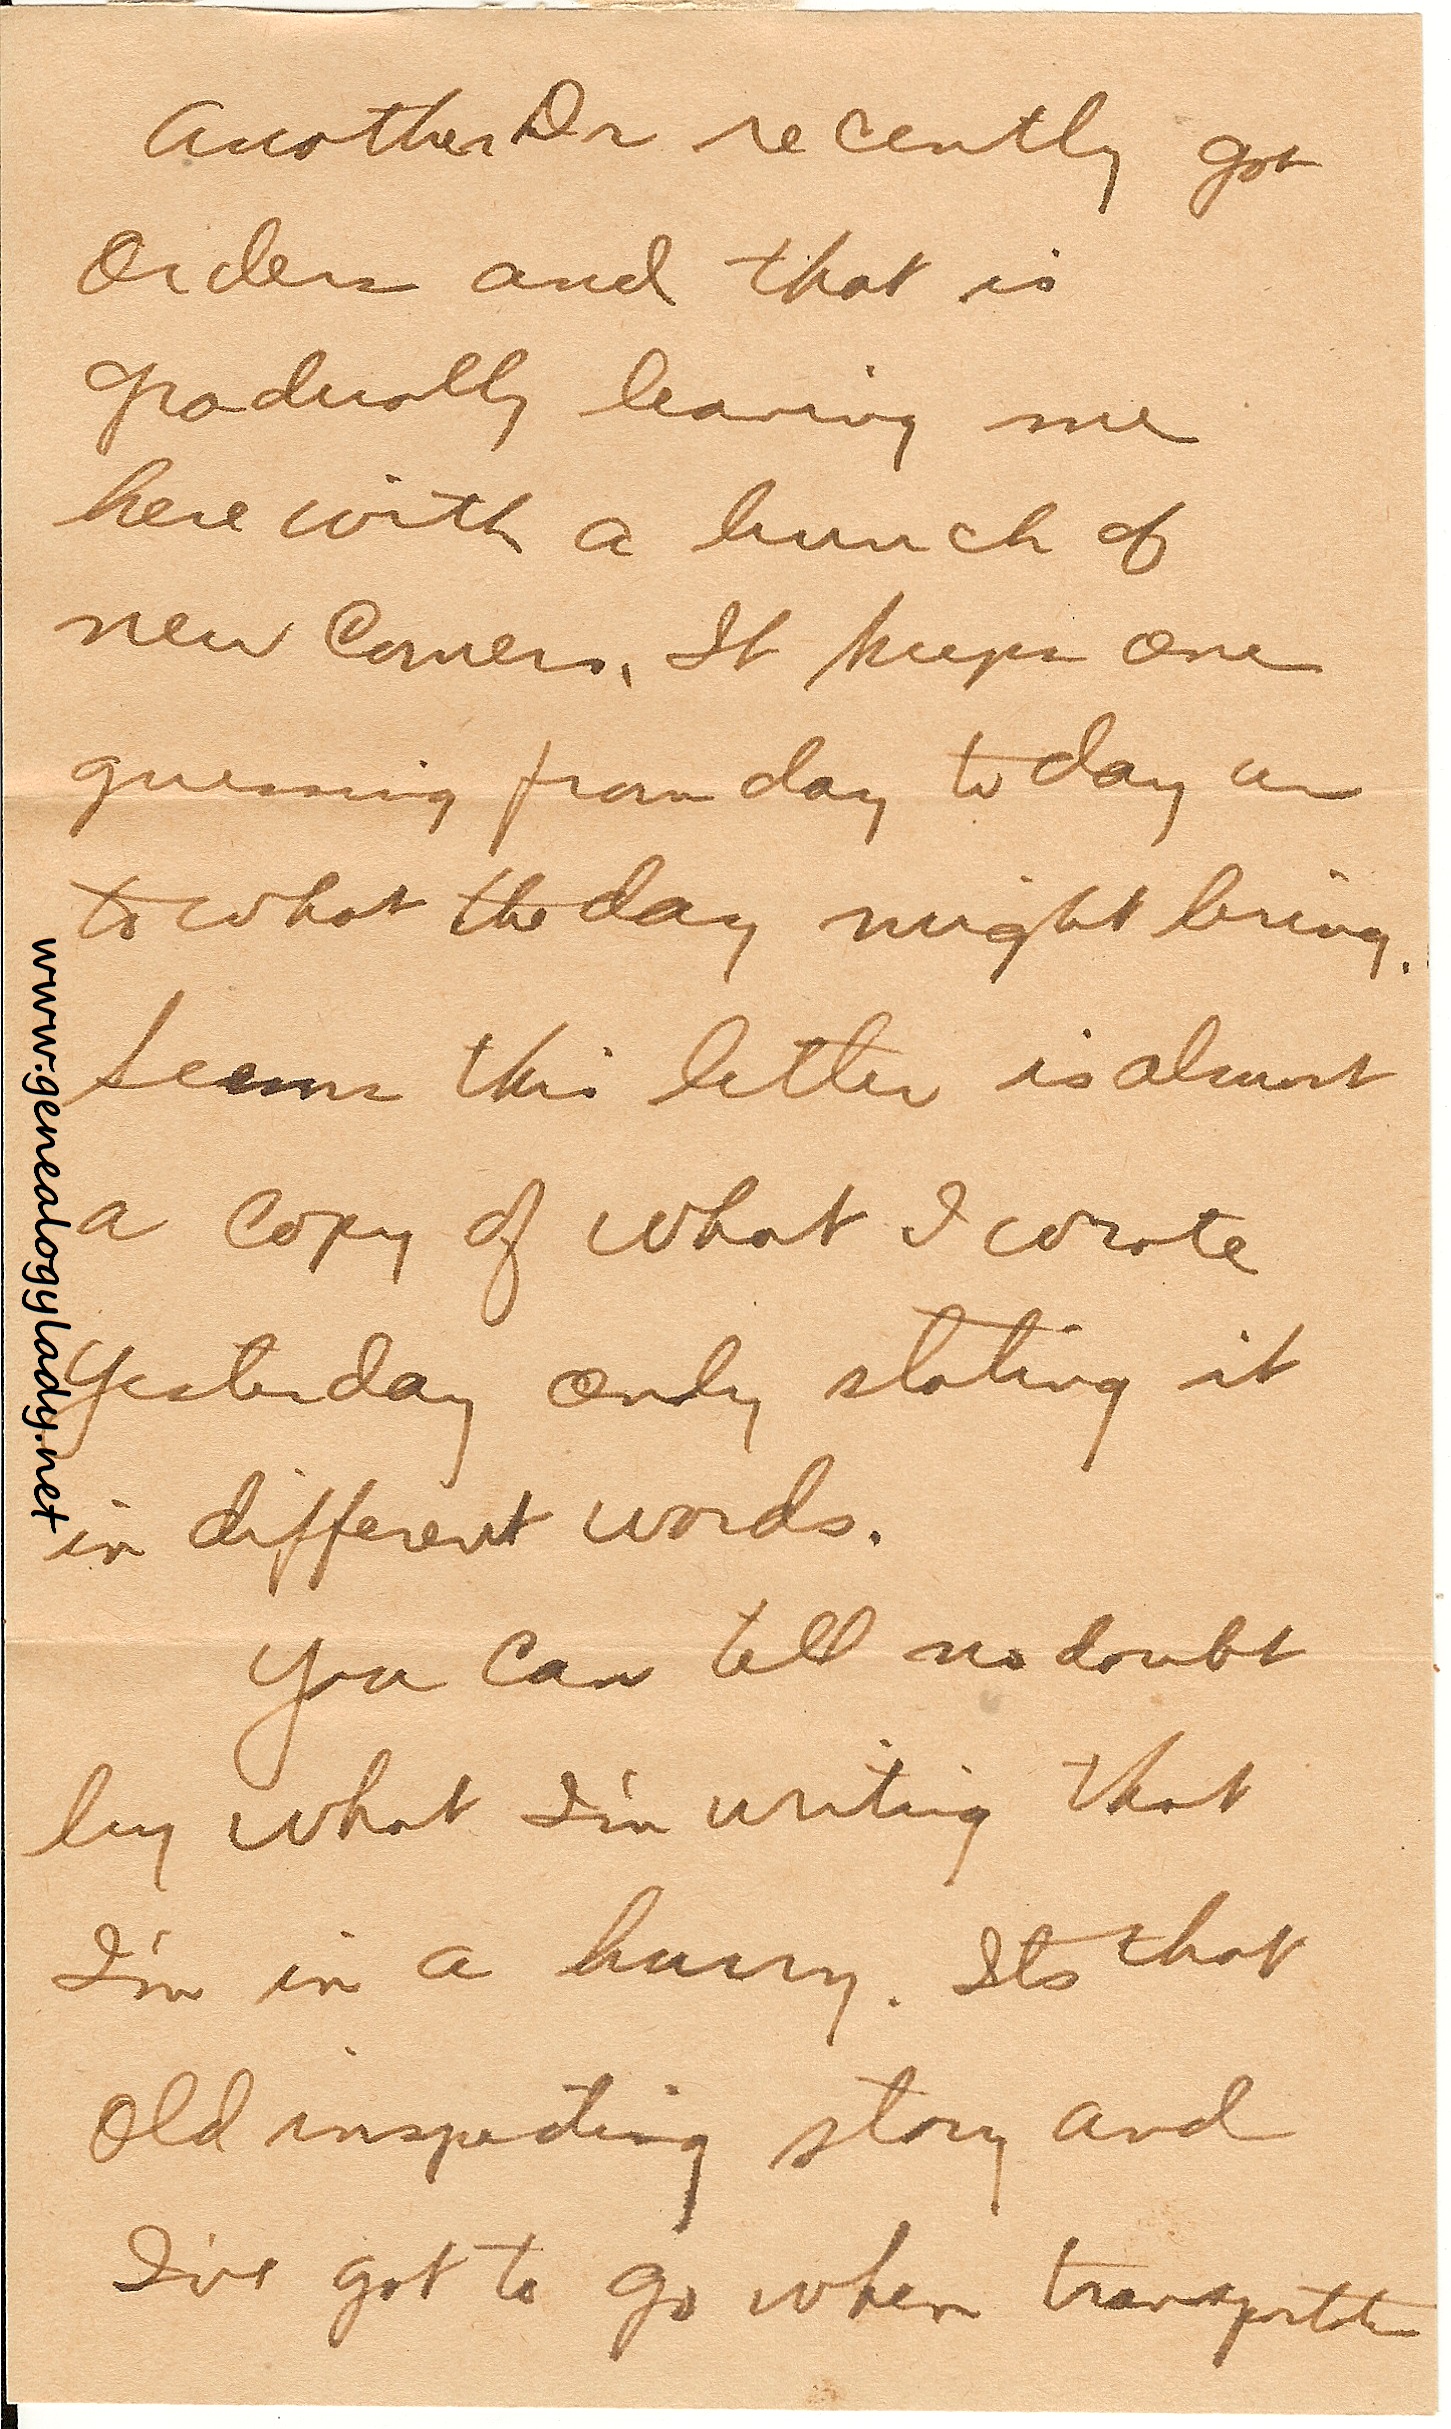 Another Dr recently got
Orders and that is
gradually leaving me
here with a bunch of
new Comers. It keeps one
guessing from day to day as
to what the day might bring.
Seems this letter is almost
a Copy of what I wrote
Yesterday only stating it
in different words.
You Can tell no doubt
by what I'm writing that
I'm in a hurry. Its that
Old inspecting story and
I've got to go when
www.genealogylady.net